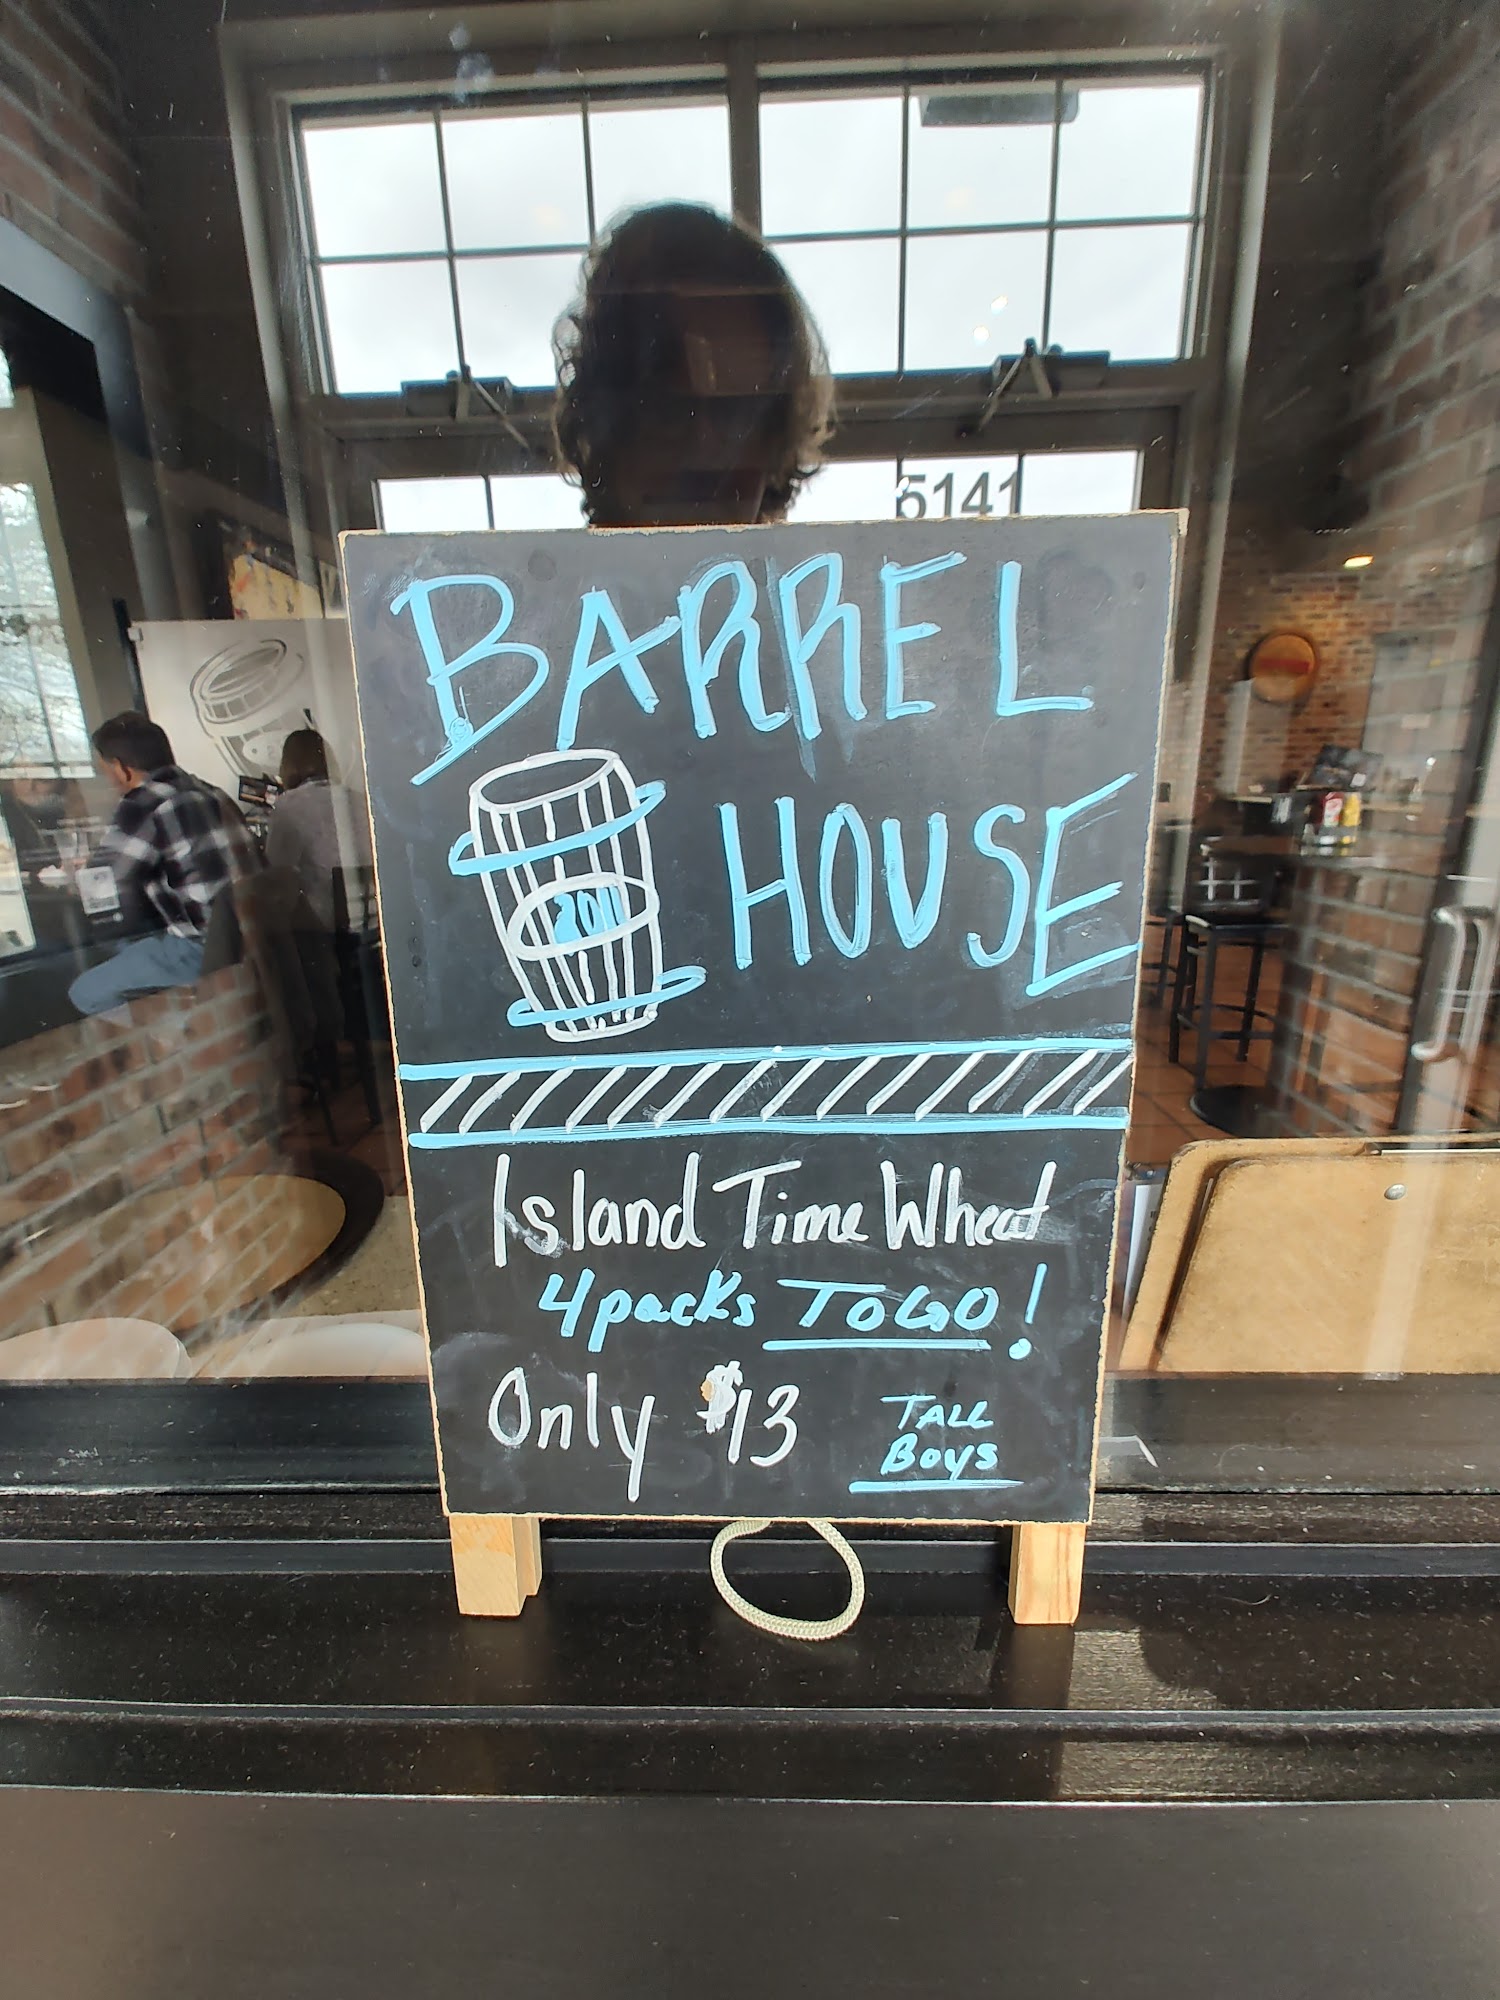 5141
BARREL
HOUSE
2011
Island Time Wheat
4packs TO GO!
Only $13
TALL
BOYS